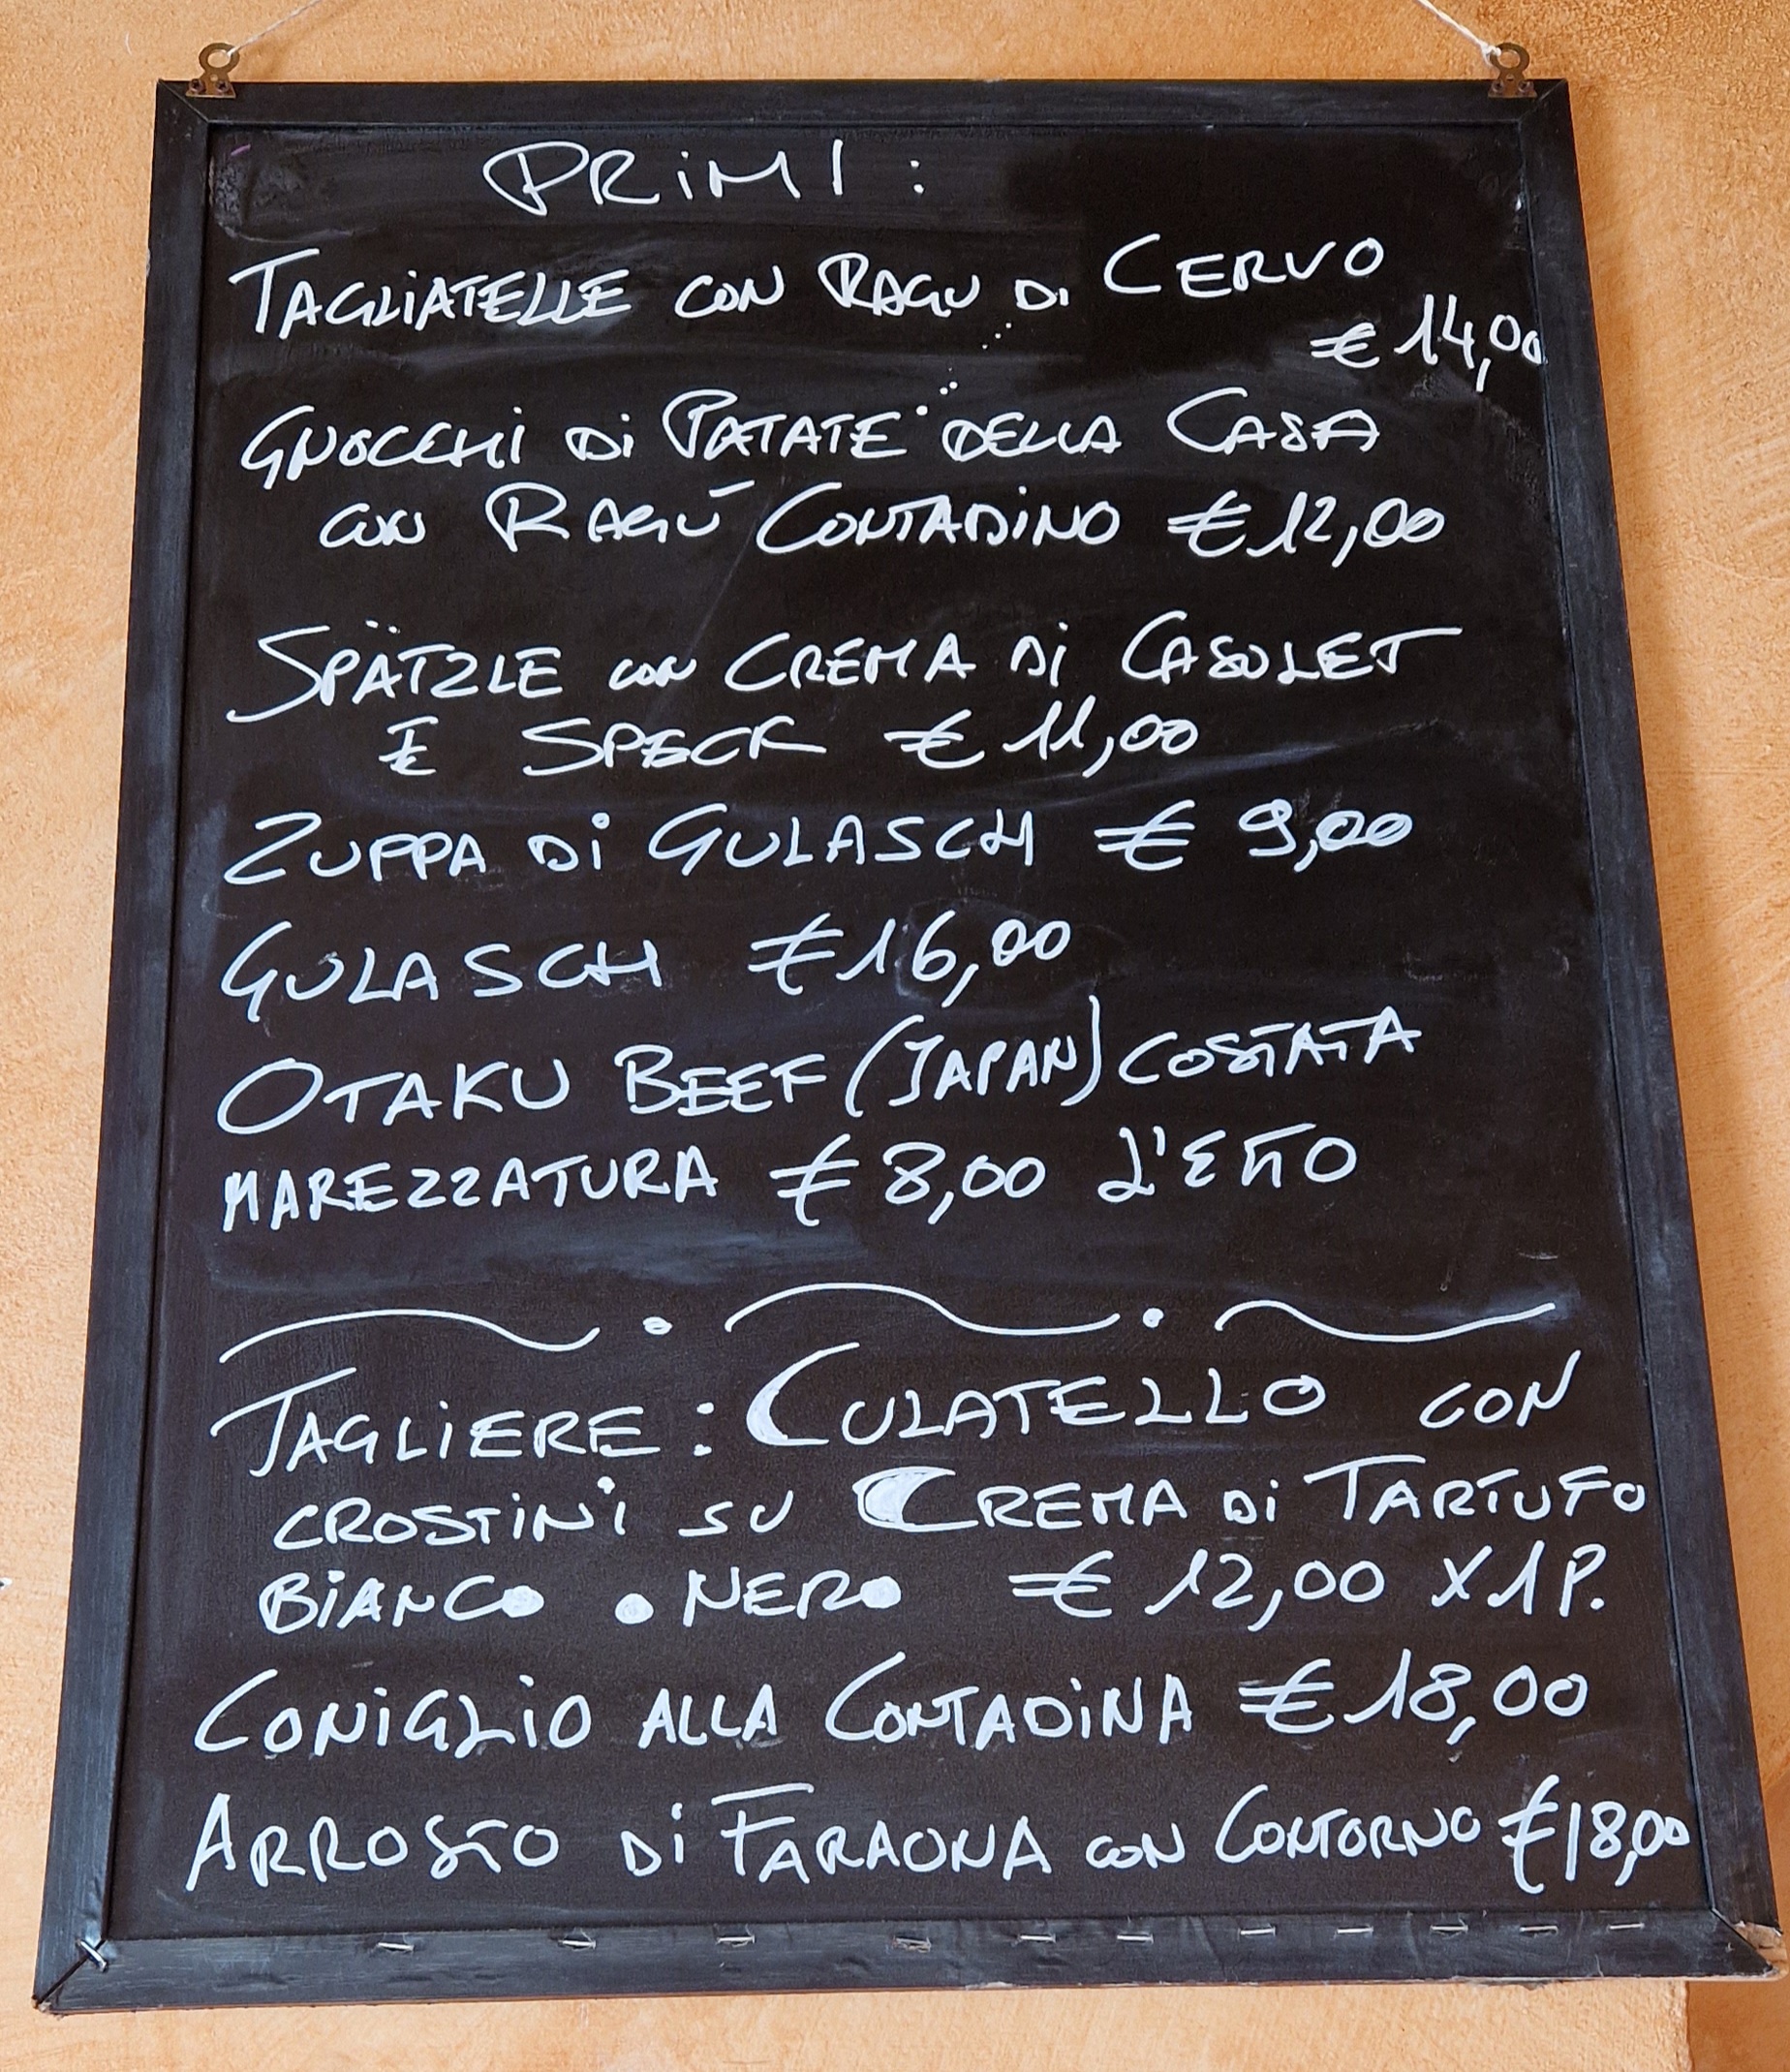 PRiMI :
TAGLIATELLE CON RAGU DI CERVO
€ 14,00
GNOCCHi Di PATATE DELLA CASA
CON RAGÙ CONTADINO € 12,00
SPÄTZLE CON CREMA Di CASOLET
E SPECK € 11,00
ZUPPA Di GULASCH € 9,00
GULASCH € 16,00
OTAKU BEEF (JAPAN) COSTATA
MAREZZATURA € 8,00 L'ETTO
TAGLiERE : CULATELLO CON
CROSTiNi SU CREMA Di TARTUFO
BiANCO • NERO € 12,00 X 1 P.
CONiGLiO ALLA CONTADiNA € 18,00
ARROSTO Di FARAONA CON CONTORNO € 18,00